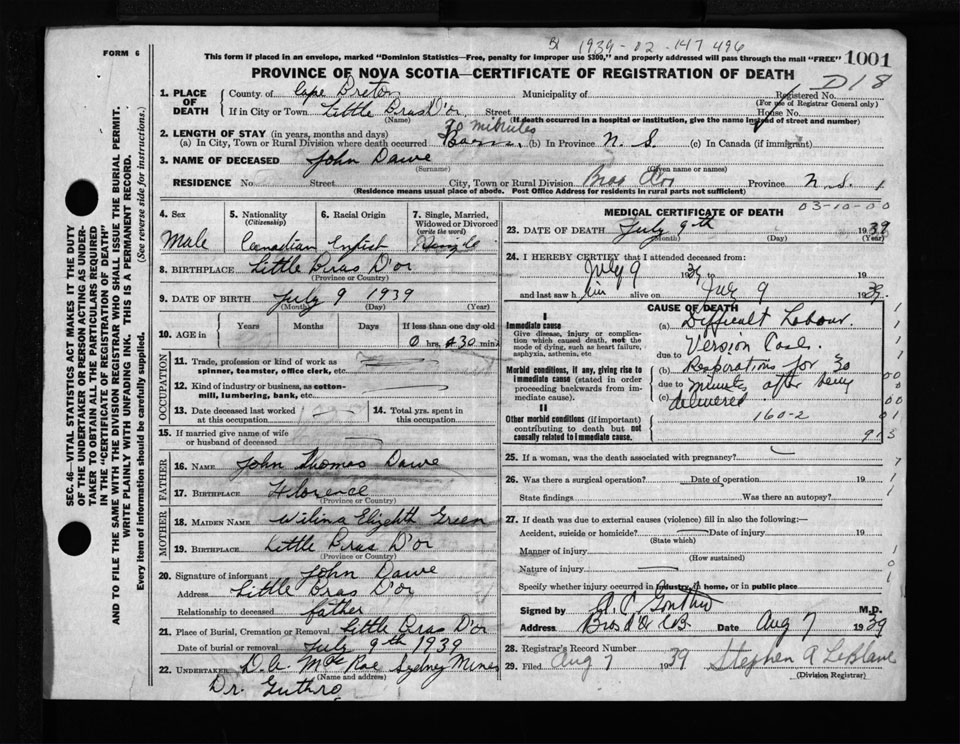 FORM 6
1939-02-147496
This form if placed in an envelope, marked "Dominion Statistics—Free, penalty for improper use $300," and properly addressed will pass through the mail "FREE"
1001
PROVINCE OF NOVA SCOTIA—CERTIFICATE OF REGISTRATION OF DEATH
D18
1. PLACE OF DEATH
County of Cape Breton Municipality of Registered No.
(For use of Registrar General only)
If in City or Town Little Bras D'or Street House No.
(Name) (If death occurred in a hospital or institution, give the name instead of street and number)
2. LENGTH OF STAY (in years, months and days) 30 minutes
(a) In City, Town or Rural Division where death occurred (b) In Province N. S. (c) In Canada (if immigrant)
3. NAME OF DECEASED John Dawe
(Surname) (Given name or names)
RESIDENCE No. Street. City, Town or Rural Division Bras d'or Province N.S.
(Residence means usual place of abode. Post Office Address for residents in rural parts not sufficient)
SEC. 46—VITAL STATISTICS ACT MAKES IT THE DUTY OF THE UNDERTAKER OR PERSON ACTING AS UNDERTAKER TO OBTAIN ALL THE PARTICULARS REQUIRED IN THE "CERTIFICATE OF REGISTRATION OF DEATH"
AND TO FILE THE SAME WITH THE DIVISION REGISTRAR WHO SHALL ISSUE THE BURIAL PERMIT.
(See reverse side for instructions.)
WRITE PLAINLY WITH UNFADING INK. THIS IS A PERMANENT RECORD.
Every item of information should be carefully supplied.
4. Sex
Male
5. Nationality
(Citizenship)
Canadian
6. Racial Origin
English
7. Single, Married, Widowed or Divorced
(write the word)
Single
8. BIRTHPLACE Little Bras D'or
(Province or Country)
9. DATE OF BIRTH July 9 1939
(Month) (Day) (Year)
10. AGE in
Years Months Days If less than one day old
0 hrs. 30 min.
OCCUPATION
11. Trade, profession or kind of work as spinner, teamster, office clerk, etc.
12. Kind of industry or business, as cotton-mill, lumbering, bank, etc.
13. Date deceased last worked at this occupation
14. Total yrs. spent in this occupation
15. If married give name of wife or husband of deceased
FATHER
16. NAME John Thomas Dawe
17. BIRTHPLACE Florence
(Province or Country)
MOTHER
18. MAIDEN NAME Wilina Elizabeth Green
19. BIRTHPLACE Little Bras D'or
(Province or Country)
20. Signature of informant John Dawe
Address Little Bras D'or
Relationship to deceased father
21. Place of Burial, Cremation or Removal Little Bras D'or
Date of burial or removal July 9th 1939
22. UNDERTAKER D.A. McRae Sydney Mines
(Name and address)
Dr. Guthro
MEDICAL CERTIFICATE OF DEATH
03-10-00
23. DATE OF DEATH July 9th 1939
(Month) (Day) (Year)
24. I HEREBY CERTIFY that I attended deceased from:
July 9 1939 19
and last saw him alive on July 9 1939.
CAUSE OF DEATH
I
Immediate cause
Give disease, injury or complication which caused death, not the mode of dying, such as heart failure, asphyxia, asthenia, etc
Morbid conditions, if any, giving rise to immediate cause (stated in order proceeding backwards from immediate cause).
II
Other morbid conditions (if important) contributing to death but not causally related to immediate cause.
(a) Difficult Labour.
due to Version Case.
(b) Respirations for 30
due to minutes after being
(c) delivered
160-2
25. If a woman, was the death associated with pregnancy?
26. Was there a surgical operation? Date of operation 19
State findings Was there an autopsy?
27. If death was due to external causes (violence) fill in also the following:—
Accident, suicide or homicide? Date of injury 19
(State which)
Manner of injury
(How sustained)
Nature of injury
Specify whether injury occurred in industry, in home, or in public place
Signed by M.D.
Address Bras d'Or C.B. Date Aug 7 1939
28. Registrar's Record Number
29. Filed Aug 7 1939 Stephen A LeBlanc
(Division Registrar)